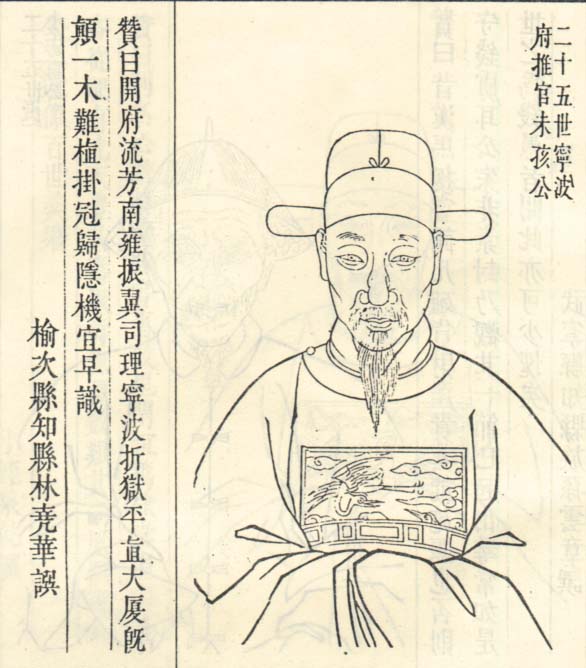 二十五世寧波
府推官未孩公
贊曰開府流芳南雍振翼司理寧波折獄平直大厦旣
顛一木難植掛冠歸隱機宜早識
榆次縣知縣林堯華譔